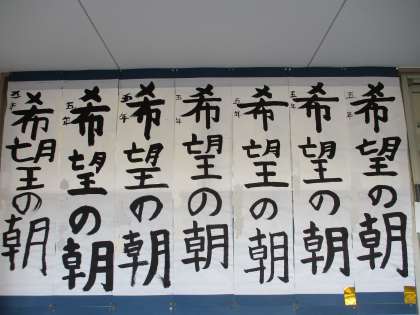 希望の朝
五年
希望の朝
五年
希望の朝
五年
希望の朝
五年
希望の朝
五年
希望の朝
五年
希望の朝
五年